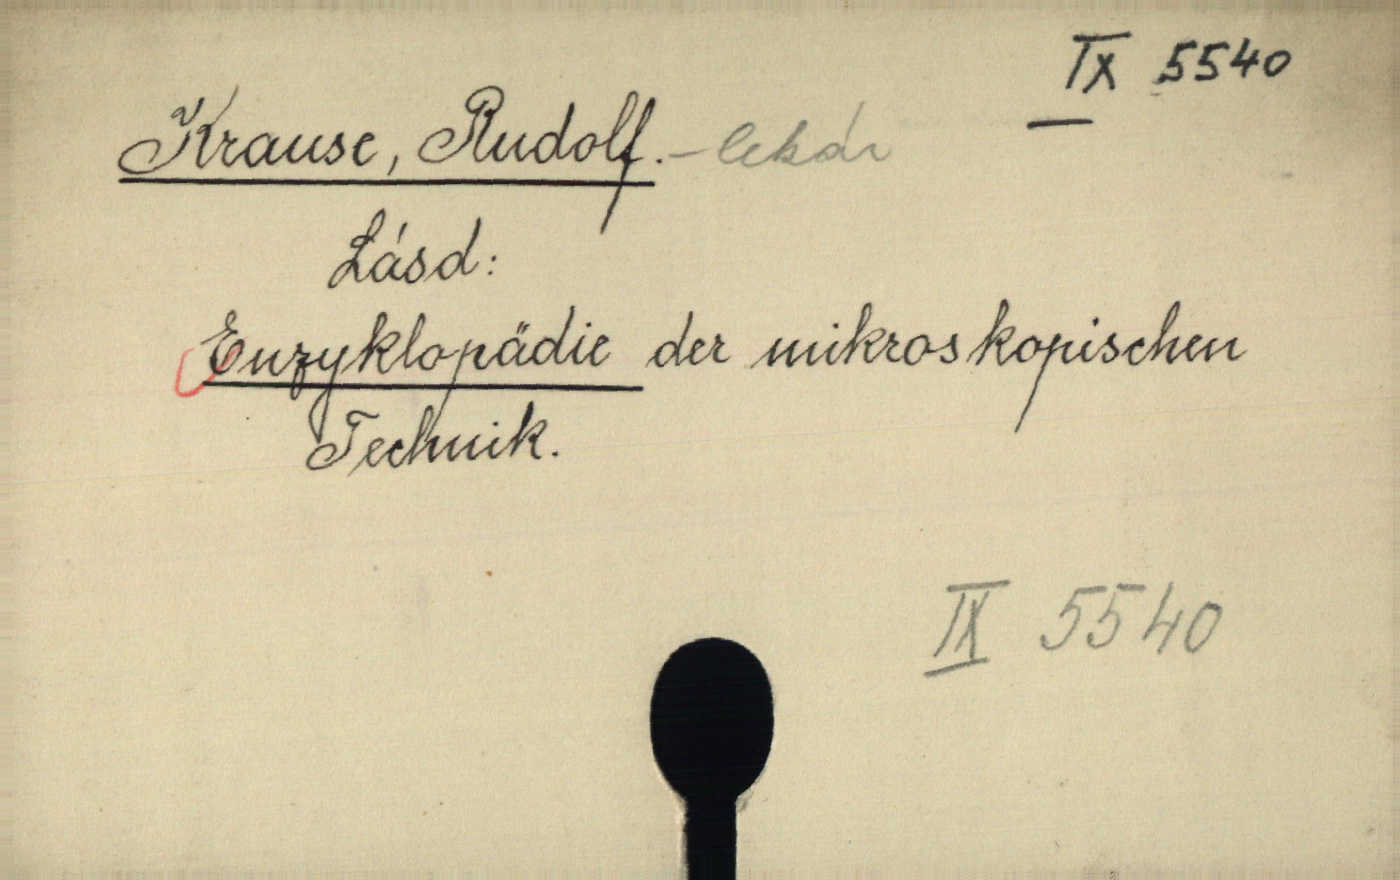 IX 5540
Krause, Rudolf. - lekár
Lásd:
Enzyklopädie der mikroskopischen
Technik.
IX 5540